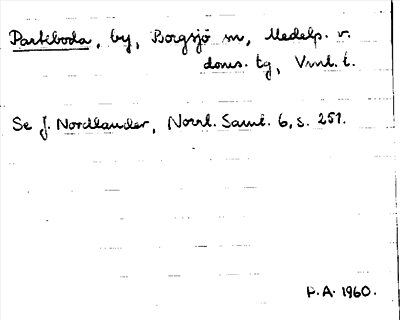 Parteboda, by, Borgsjö sn, Medelp. v.
doms. tg, Vnl. l.
Se J. Nordlander, Norrl. Saml. 6, s. 251.
P.A. 1960.